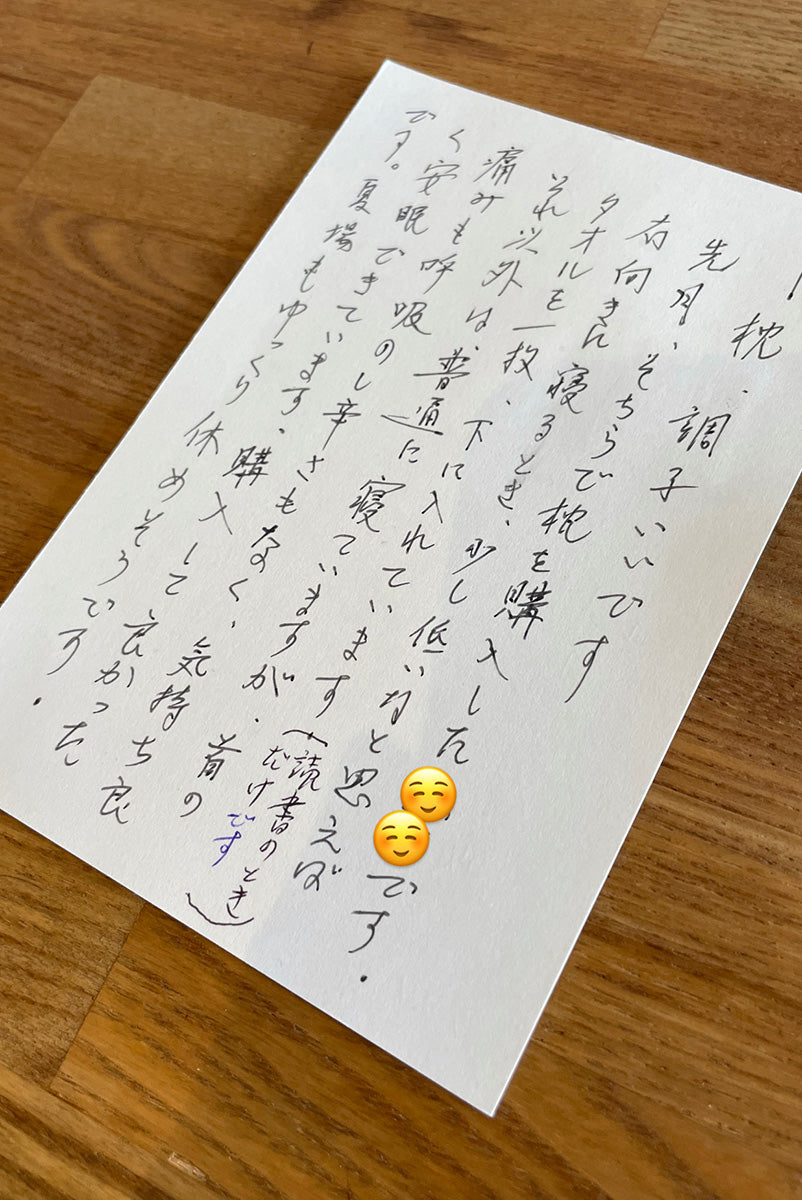 枕、調子いいです
先月、そちらで枕を購入した
です。
右向きに寝るとき、少し低いなと思えば
タオルを一枚、下に入れています
(読書のとき
だけです)
それ以外は、普通に寝ていますが、首の
痛みも呼吸のし辛さもなく、気持ち良
く安眠できています。購入して良かった
です。夏場もゆっくり休めそうです。